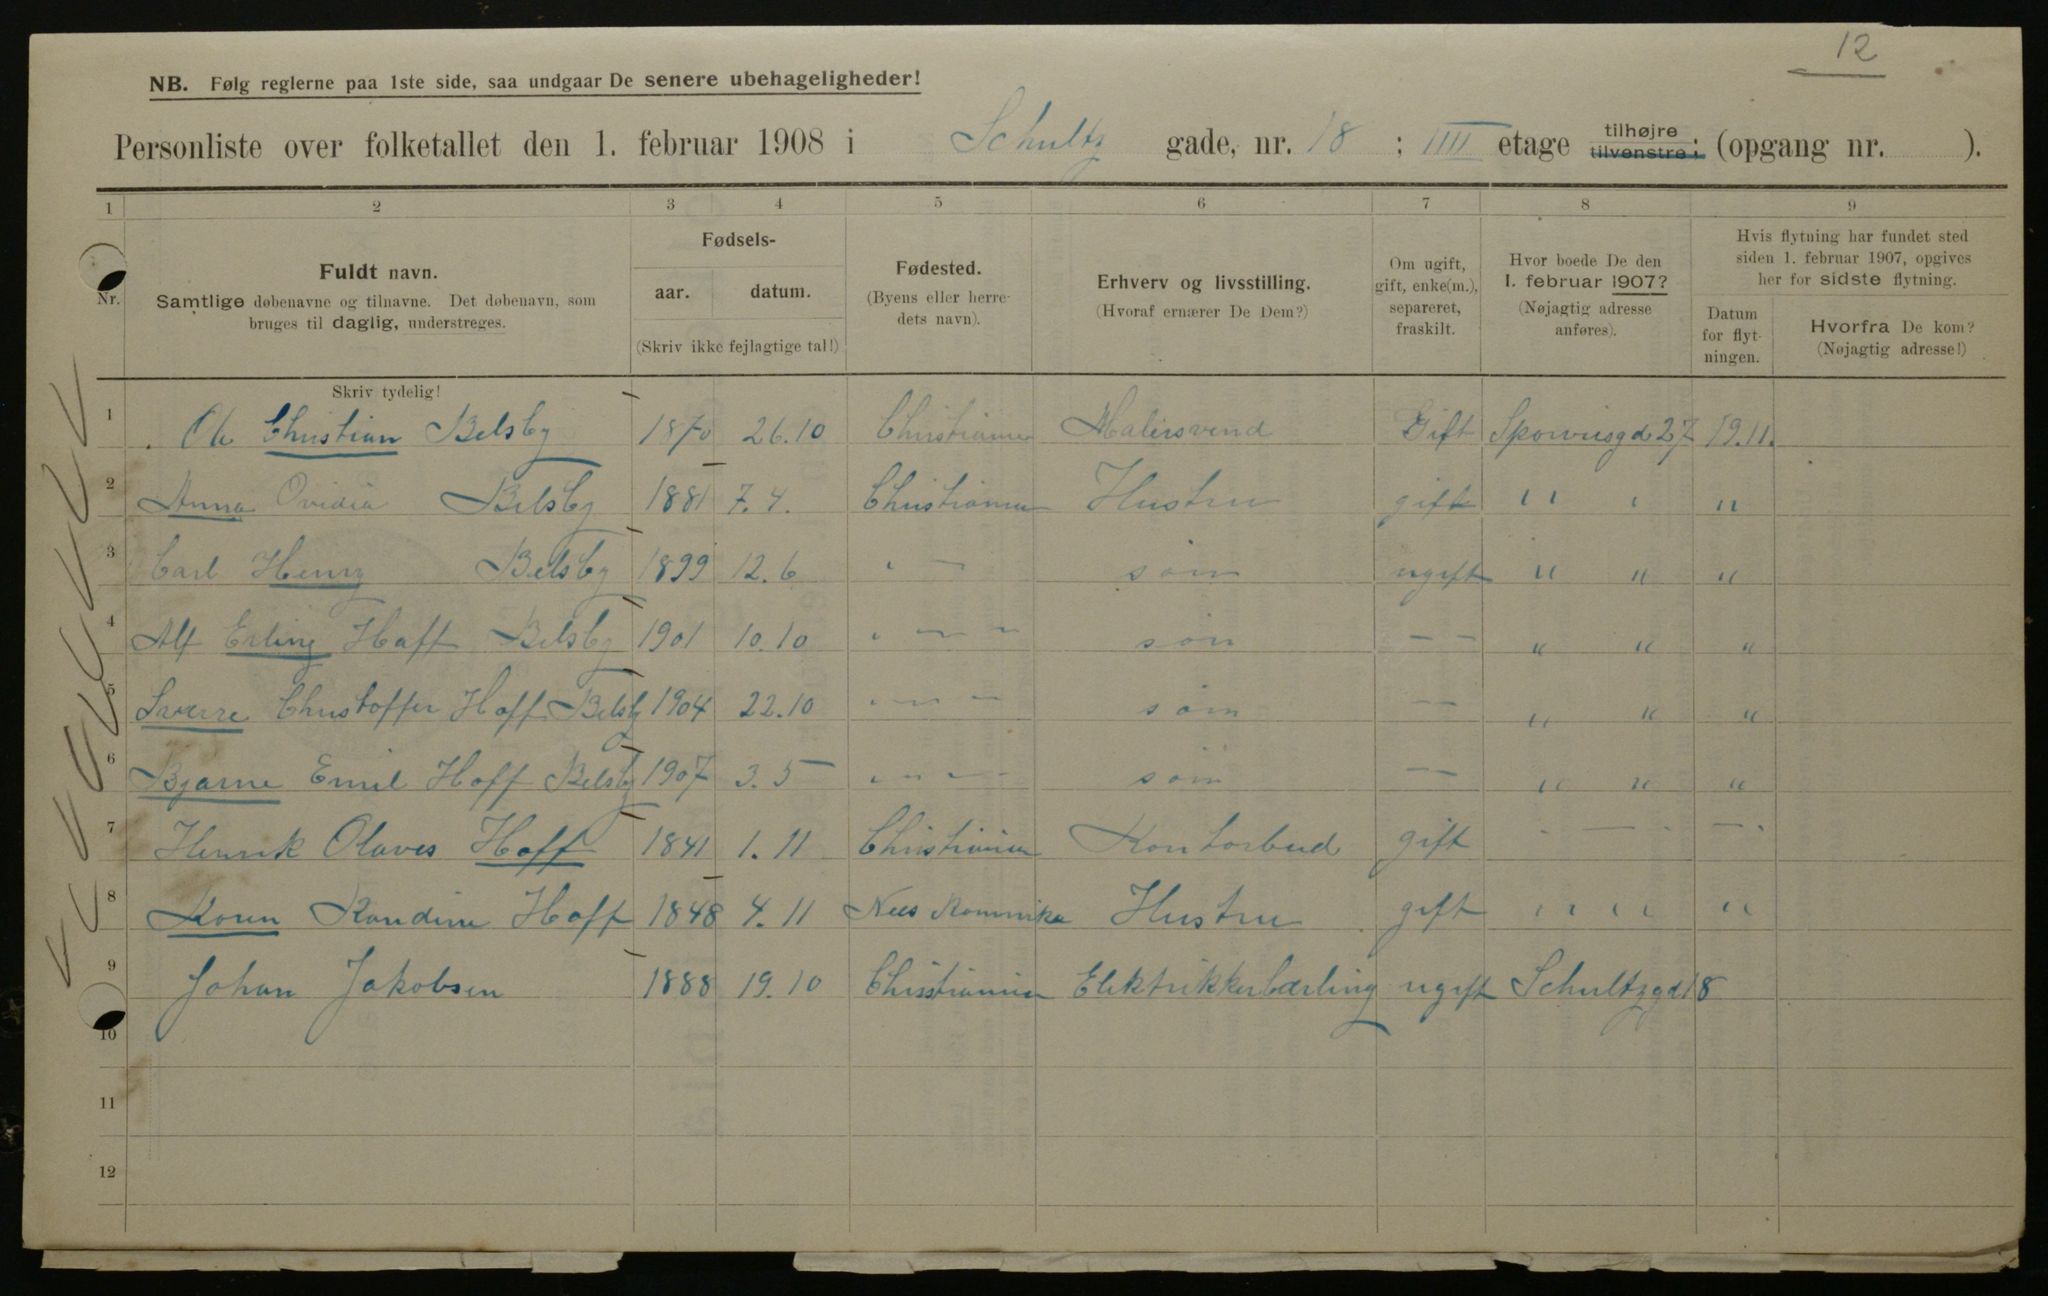 12
NB. Følg reglerne paa 1ste side, saa undgaar De senere ubehageligheder!
Personliste over folketallet den 1. februar 1908 i Schultz gade, nr. 18 ; IIII etage tilhøjre tilvenstre; (opgang nr. ).
1 2 3 4 5 6 7 8 9
Nr.
Fuldt navn.
Samtlige døbenavne og tilnavne. Det døbenavn, som
bruges til daglig, understreges.
Fødsels-
aar. datum.
(Skriv ikke fejlagtige tal!)
Fødested.
(Byens eller herre-
dets navn).
Erhverv og livsstilling.
(Hvoraf ernærer De Dem?)
Om ugift,
gift, enke(m.),
separeret,
fraskilt.
Hvor boede De den
1. februar 1907?
(Nøjagtig adresse
anføres).
Hvis flytning har fundet sted
siden 1. februar 1907, opgives
her for sidste flytning.
Datum
for flyt-
ningen.
Hvorfra De kom?
(Nøjagtig adresse!)
Skriv tydelig!
1 Ole Christian Belsby 1870 26.10 Christiania Malersvend Gift 27 19.11.
2 Anna Ovidia Belsby 1881 7.4. Christiania Hustru gift " " "
3 Carl Henry Belsby 1899 12.6 " — søn ugift " " "
4 Alf Erling Hoff Belsby 1901 10.10 " — — søn — — " " "
5 Sverre Christoffer Hoff Belsby 1904 22.10 " — — søn — — " " "
6 Bjarne Emil Hoff Belsby 1907 3.5 " — — søn — — " " "
7 Henrik Olaves Hoff 1841 1.11 Christiania Kontorbud gift - — - — -
8 Karen Hoff 1848 4.11 Nes Hustru gift " " "
9 Johan Jakobsen 1888 19.10 Christiania Elektrikkerlærling ugift Schultzgd 18
10
11
12